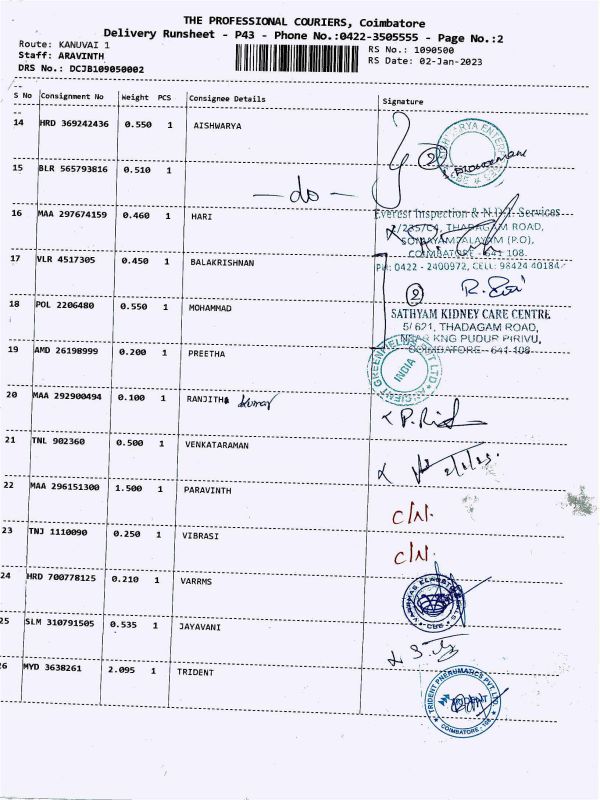 THE PROFESSIONAL COURIERS, Coimbatore
Delivery Runsheet - P43 - Phone No.:0422-3505555 - Page No.:2
Route: KANUVAI 1
Staff: ARAVINTH
DRS No.: DCJB109050002
RS No.: 1090500
RS Date: 02-Jan-2023
S No Consignment No Weight PCS Consignee Details Signature
14 HRD 369242436 0.550 1 AISHWARYA
2
15 BLR 565793816 0.510 1
— do —
16 MAA 297674159 0.460 1 HARI
Everest Inspection & N.D.T. Services
2/235/C4, THADAGAM ROAD,
SOMAYAMPALAYAM (P.O),
COIMBATORE - 641 108.
PH: 0422 - 2400972, CELL: 98424 40184
17 VLR 4517305 0.450 1 BALAKRISHNAN
2
18 POL 2206480 0.550 1 MOHAMMAD
SATHYAM KIDNEY CARE CENTRE
5/ 621, THADAGAM ROAD,
NEAR KNG PUDUR PIRIVU,
COIMBATORE - 641 108
19 AMD 26198999 0.200 1 PREETHA
INDIA
20 MAA 292900494 0.100 1 RANJITH Kumar
21 TNL 902360 0.500 1 VENKATARAMAN
2/1/23
22 MAA 296151300 1.500 1 PARAVINTH
C/N.
23 TNJ 1110090 0.250 1 VIBRASI
C/N.
24 HRD 700778125 0.210 1 VARRMS
25 SLM 310791505 0.535 1 JAYAVANI
26 MYD 3638261 2.095 1 TRIDENT
TRIDENT PNEUMATICS PVT. LTD.
TRIDENT
COIMBATORE - 108